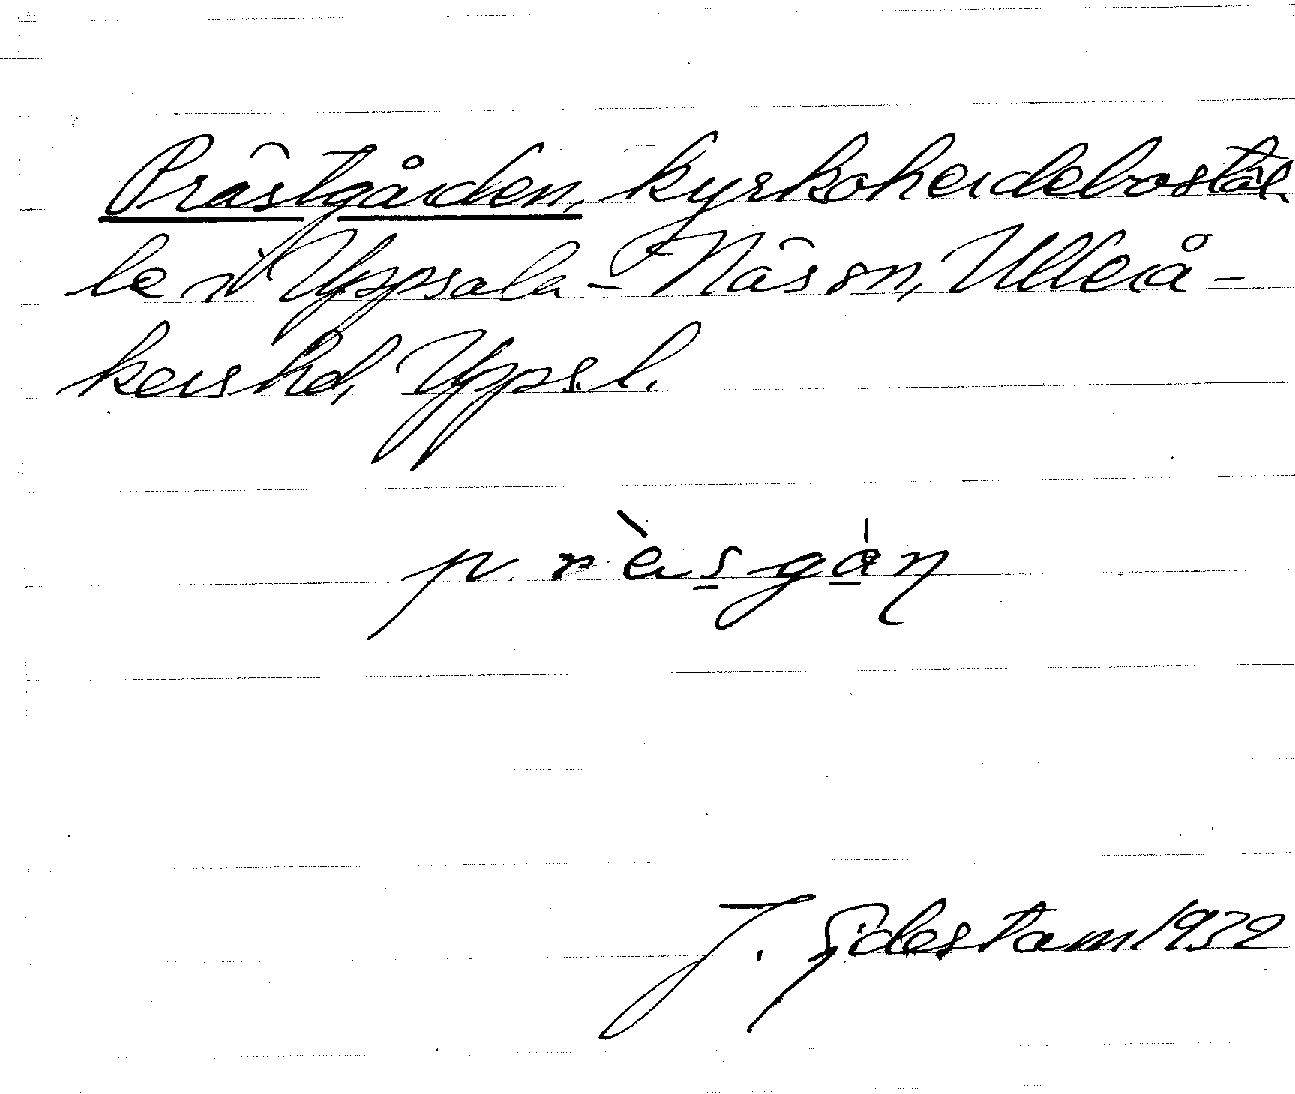 Prästgården, kyrkoherdebostäl-
le i Uppsala-Näs sn, Ullerå-
kers hd, Uppsl.
prèsgán
J. Sjdestam 1932